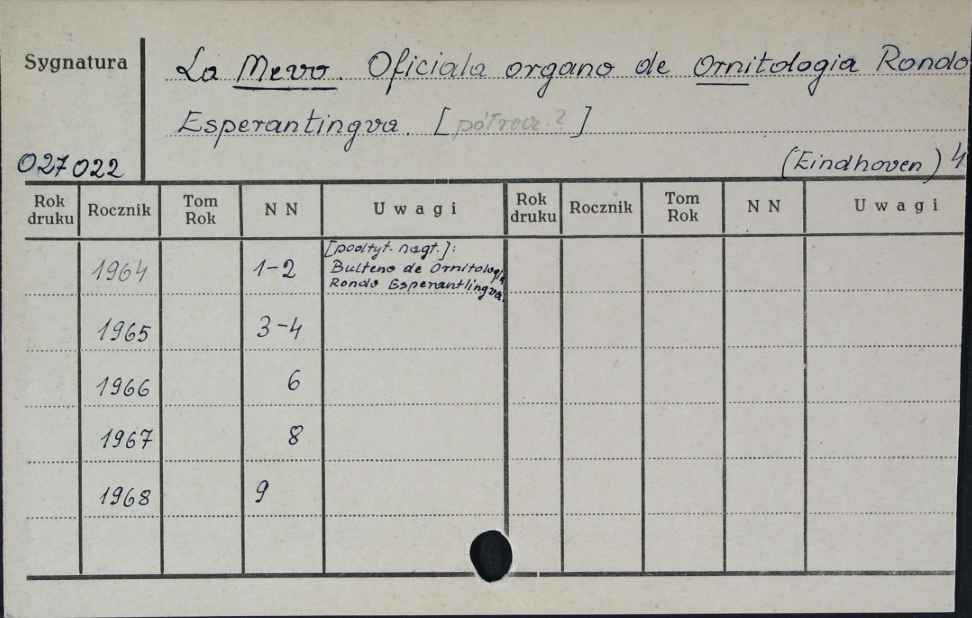 Sygnatura
La Mevo. Oficiala organo de Ornitologia Rondo
Esperantingva. [półrocz.?]
027022
(Eindhoven) 4
Rok druku Rocznik Tom Rok NN Uwagi Rok druku Rocznik Tom Rok NN Uwagi
[podtyt. nagł.]:
1964 1-2 Bulteno de Ornitologia
Rondo Esperantlingva.
1965 3-4
1966 6
1967 8
1968 9